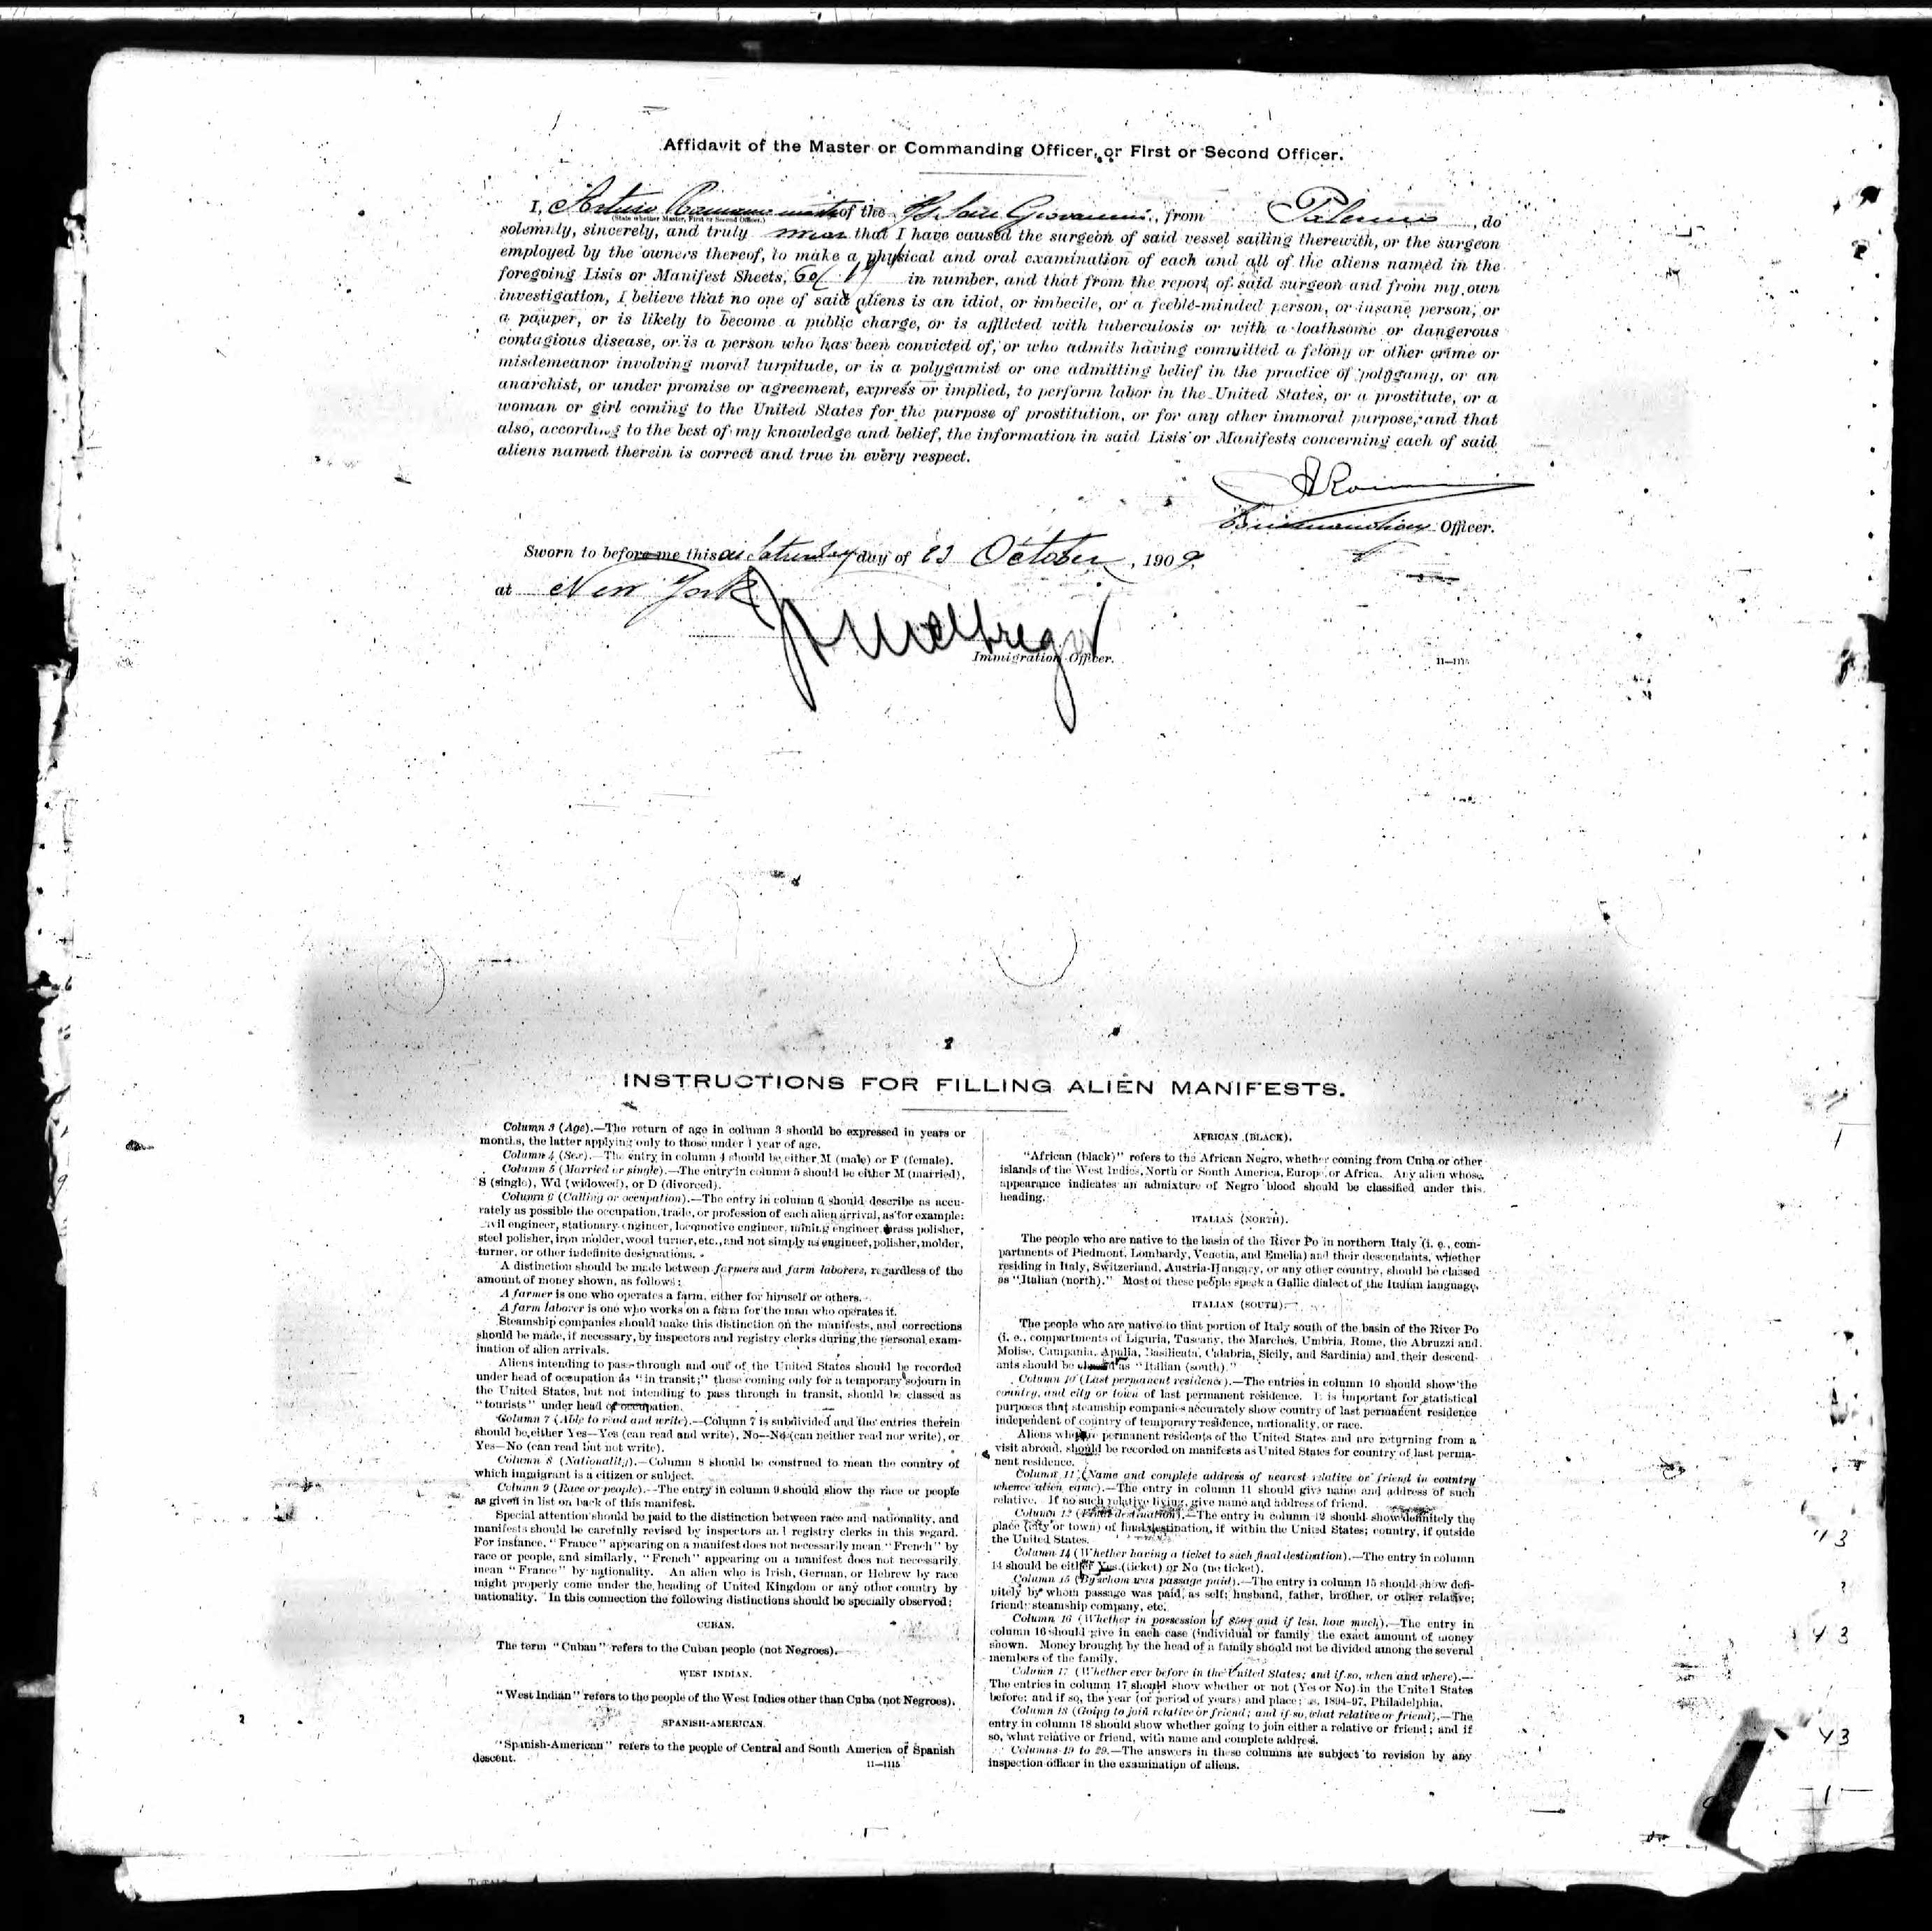 Affidavit of the Master or Commanding Officer, or First or Second Officer.
I, Arturo of the San Giovanni, from Palermo, do
(State whether Master, First or Second Officer.)
solemnly, sincerely, and truly swear that I have caused the surgeon of said vessel sailing therewith, or the surgeon
employed by the owners thereof, to make a physical and oral examination of each and all of the aliens named in the
foregoing Lists or Manifest Sheets, in number, and that from the report of said surgeon and from my own
investigation, I believe that no one of said aliens is an idiot, or imbecile, or a feeble-minded person, or insane person, or
a pauper, or is likely to become a public charge, or is afflicted with tuberculosis or with a loathsome or dangerous
contagious disease, or is a person who has been convicted of, or who admits having committed a felony or other crime or
misdemeanor involving moral turpitude, or is a polygamist or one admitting belief in the practice of polygamy, or an
anarchist, or under promise or agreement, express or implied, to perform labor in the United States, or a prostitute, or a
woman or girl coming to the United States for the purpose of prostitution, or for any other immoral purpose, and that
also, according to the best of my knowledge and belief, the information in said Lists or Manifests concerning each of said
aliens named therein is correct and true in every respect.
Officer.
Sworn to before me this Saturday day of 23 October, 1909.
at New York
Immigration Officer.
11—1115
INSTRUCTIONS FOR FILLING ALIEN MANIFESTS.
Column 3 (Age).—The return of age in column 3 should be expressed in years or
months, the latter applying only to those under 1 year of age.
Column 4 (Sex).—The entry in column 4 should be either M (male) or F (female).
Column 5 (Married or single).—The entry in column 5 should be either M (married),
S (single), Wd (widowed), or D (divorced).
Column 6 (Calling or occupation).—The entry in column 6 should describe as accu-
rately as possible the occupation, trade, or profession of each alien arrival, as for example:
civil engineer, stationary engineer, locomotive engineer, mining engineer, brass polisher,
steel polisher, iron molder, wood turner, etc., and not simply as engineer, polisher, molder,
turner, or other indefinite designations.
A distinction should be made between farmers and farm laborers, regardless of the
amount of money shown, as follows:
A farmer is one who operates a farm, either for himself or others.
A farm laborer is one who works on a farm for the man who operates it.
Steamship companies should make this distinction on the manifests, and corrections
should be made, if necessary, by inspectors and registry clerks during the personal exam-
ination of alien arrivals.
Aliens intending to pass through and out of the United States should be recorded
under head of occupation as "in transit;" those coming only for a temporary sojourn in
the United States, but not intending to pass through in transit, should be classed as
"tourists" under head of occupation.
Column 7 (Able to read and write).—Column 7 is subdivided and the entries therein
should be either Yes—Yes (can read and write), No—No (can neither read nor write), or
Yes—No (can read but not write).
Column 8 (Nationality).—Column 8 should be construed to mean the country of
which immigrant is a citizen or subject.
Column 9 (Race or people).—The entry in column 9 should show the race or people
as given in list on back of this manifest.
Special attention should be paid to the distinction between race and nationality, and
manifests should be carefully revised by inspectors and registry clerks in this regard.
For instance, "France" appearing on a manifest does not necessarily mean "French" by
race or people, and similarly, "French" appearing on a manifest does not necessarily
mean "France" by nationality. An alien who is Irish, German, or Hebrew by race
might properly come under the heading of United Kingdom or any other country by
nationality. In this connection the following distinctions should be specially observed:
CUBAN.
The term "Cuban" refers to the Cuban people (not Negroes).
WEST INDIAN.
"West Indian" refers to the people of the West Indies other than Cuba (not Negroes).
SPANISH-AMERICAN.
"Spanish-American" refers to the people of Central and South America of Spanish
descent.
11—1115
AFRICAN (BLACK).
"African (black)" refers to the African Negro, whether coming from Cuba or other
islands of the West Indies, North or South America, Europe, or Africa. Any alien whose
appearance indicates an admixture of Negro blood should be classified under this
heading.
ITALIAN (NORTH).
The people who are native to the basin of the River Po in northern Italy (i. e., com-
partments of Piedmont, Lombardy, Venetia, and Emelia) and their descendants, whether
residing in Italy, Switzerland, Austria-Hungary, or any other country, should be classed
as "Italian (north)." Most of these people speak a Gallic dialect of the Italian language.
ITALIAN (SOUTH).
The people who are native to that portion of Italy south of the basin of the River Po
(i. e., compartments of Liguria, Tuscany, the Marches, Umbria, Rome, the Abruzzi and
Molise, Campania, Apulia, Basilicata, Calabria, Sicily, and Sardinia) and their descend-
ants should be classed as "Italian (south)."
Column 10 (Last permanent residence).—The entries in column 10 should show the
country, and city or town of last permanent residence. It is important for statistical
purposes that steamship companies accurately show country of last permanent residence
independent of country of temporary residence, nationality, or race.
Aliens who are permanent residents of the United States and are returning from a
visit abroad, should be recorded on manifests as United States for country of last perma-
nent residence.
Column 11 (Name and complete address of nearest relative or friend in country
whence alien came).—The entry in column 11 should give name and address of such
relative. If no such relative living, give name and address of friend.
Column 12 (Final destination).—The entry in column 12 should show definitely the
place (city or town) of final destination, if within the United States; country, if outside
the United States.
Column 14 (Whether having a ticket to such final destination).—The entry in column
14 should be either Yes (ticket) or No (no ticket).
Column 15 (By whom was passage paid).—The entry in column 15 should show defi-
nitely by whom passage was paid, as self; husband, father, brother, or other relative;
friend; steamship company, etc.
Column 16 (Whether in possession of $50, and if less, how much).—The entry in
column 16 should give in each case (individual or family) the exact amount of money
shown. Money brought by the head of a family should not be divided among the several
members of the family.
Column 17 (Whether ever before in the United States; and if so, when and where).—
The entries in column 17 should show whether or not (Yes or No) in the United States
before; and if so, the year (or period of years) and place; as, 1894-97, Philadelphia.
Column 18 (Going to join relative or friend; and if so, what relative or friend).—The
entry in column 18 should show whether going to join either a relative or friend; and if
so, what relative or friend, with name and complete address.
Columns 19 to 29.—The answers in these columns are subject to revision by any
inspection officer in the examination of aliens.
43
43
43